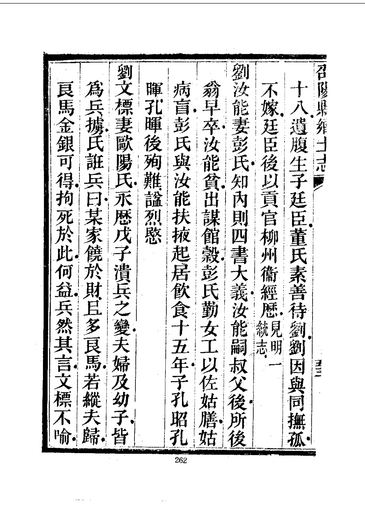 邵陽縣鄉土志
十八遺腹生子廷臣董氏素善待劉劉因與同撫孤
不嫁廷臣後以貢官柳州衞經歷見明一
統志
劉汝能妻彭氏知內則四書大義汝能嗣叔父後所後
翁早卒汝能貧出謀館穀彭氏勤女工以佐姑膳姑
病盲彭氏與汝能扶掖起居飲食十五年子孔昭孔
暉孔暉後殉難諡烈愍
劉文標妻歐陽氏永歷戊子潰兵之變夫婦及幼子皆
爲兵擄氏誑兵曰某家饒於財且多良馬若縱夫歸
良馬金銀可得拘死於此何益兵然其言文標不喻
262